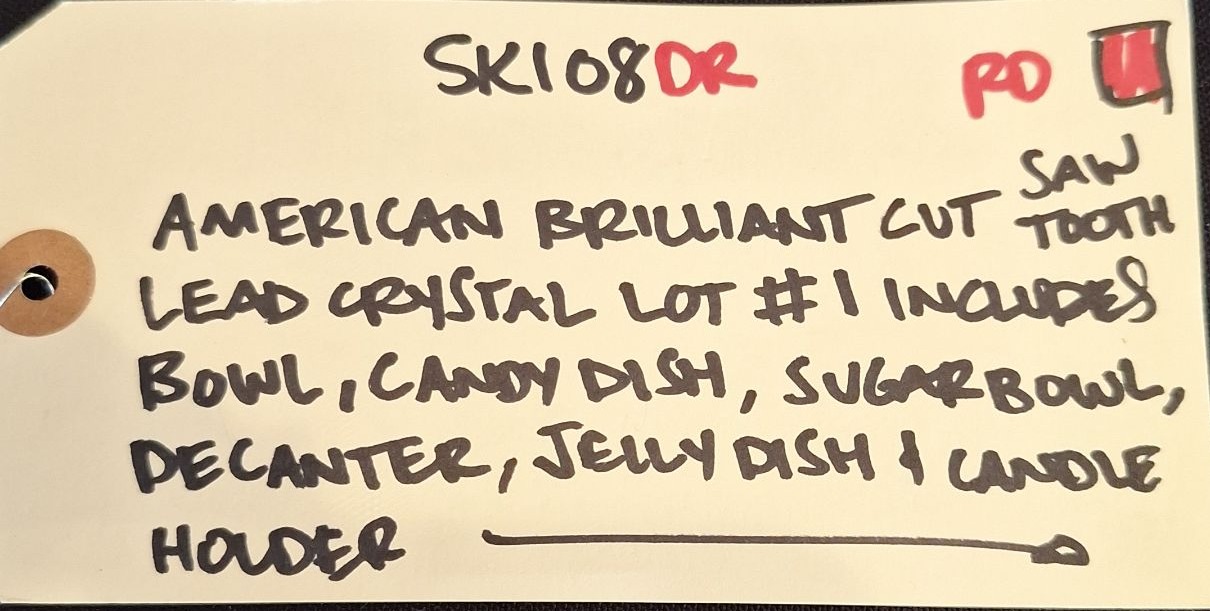 SK108DR RD
AMERICAN BRILLIANT CUT SAW TOOTH
LEAD CRYSTAL LOT #1 INCLUDES
BOWL, CANDY DISH, SUGAR BOWL,
DECANTER, JELLY DISH & CANDLE
HOLDER